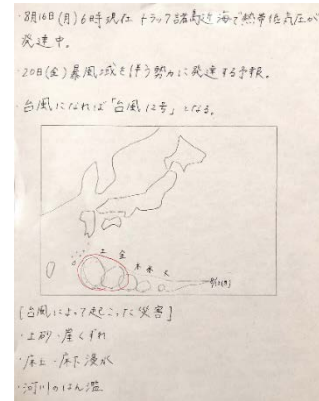 ・8月16日(月)6時現在 トラック諸島近海で熱帯低気圧が
発達中。
・20日(金)暴風域を伴う勢力に発達する予報。
・台風になれば「台風12号」となる。
土 金
木 水 火
[台風によって起こった災害]
・土砂・崖くずれ
・床上・床下浸水
・河川のはん濫